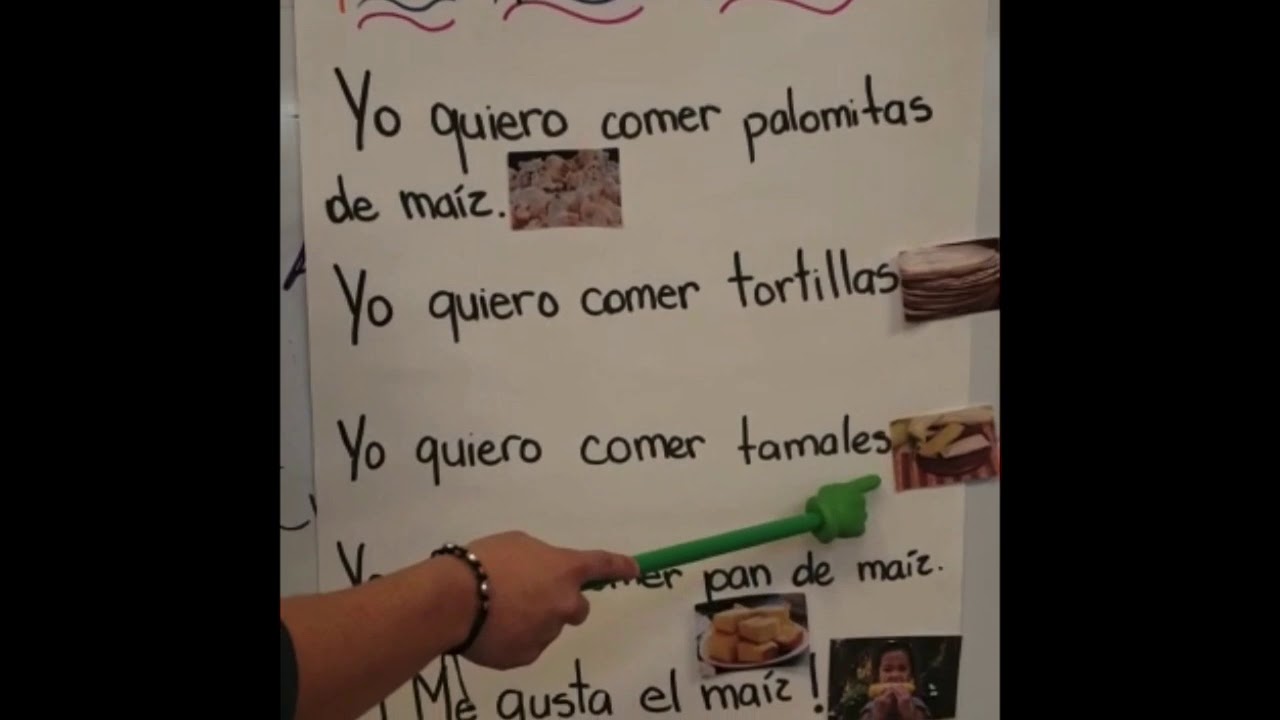 Yo quiero comer palomitas
de maíz.
Yo quiero comer tortillas
Yo quiero comer tamales
pan de maíz.
¡Me gusta el maíz!